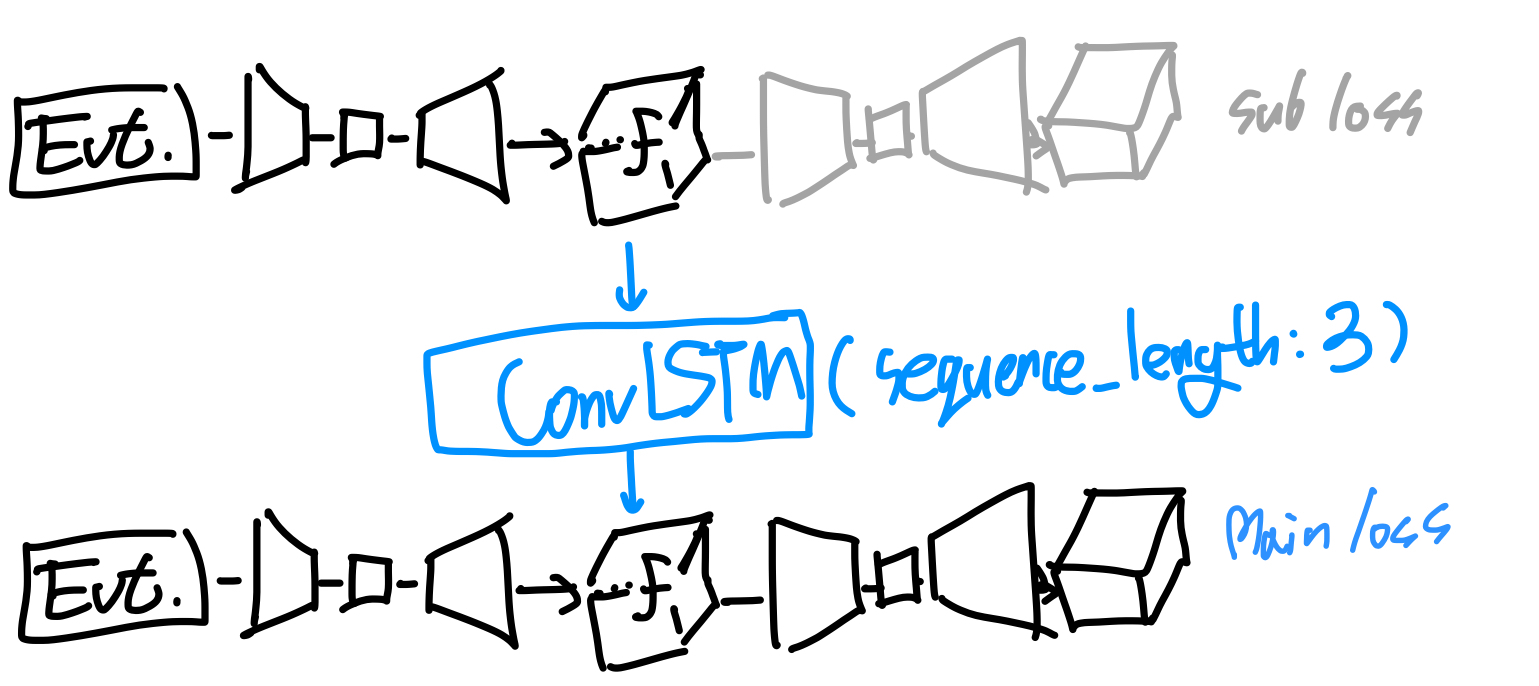 Evt.
f
sub loss
ConvLSTM (sequence_length: 3)
Evt.
f
Main loss